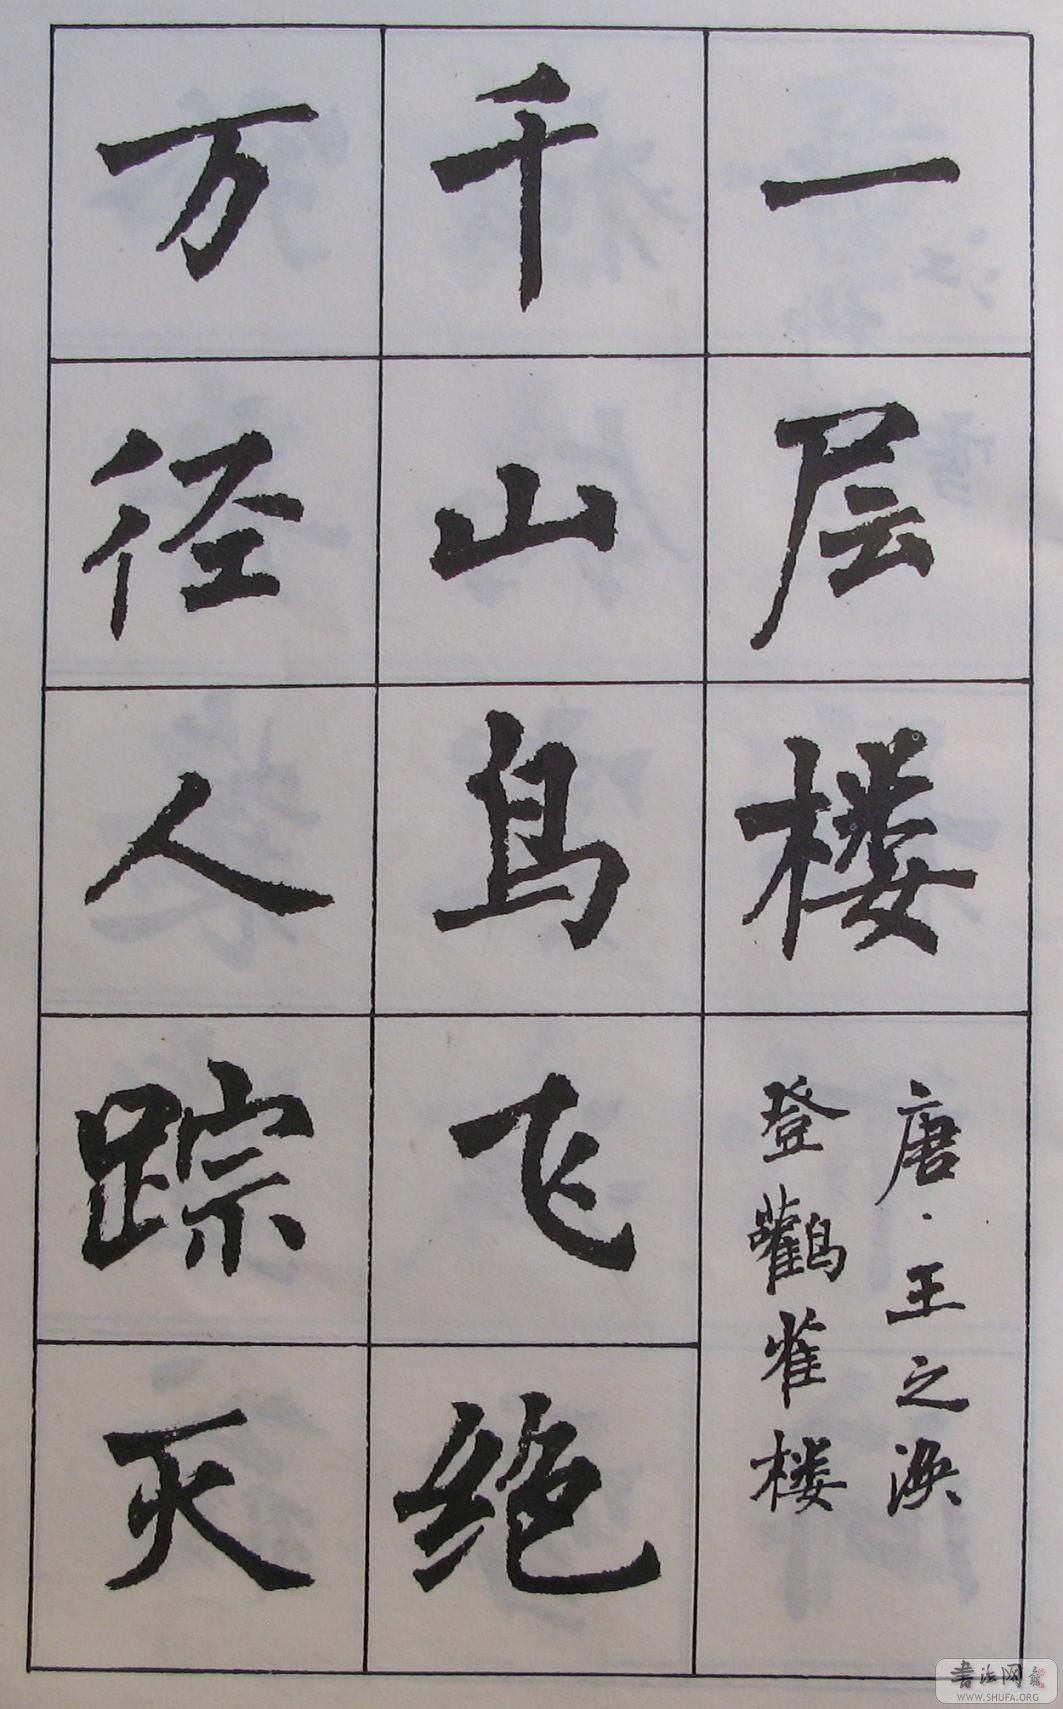 一层楼
唐·王之涣
登鹳雀楼
千山鸟飞绝
万径人踪灭
书法网
WWW.SHUFA.ORG